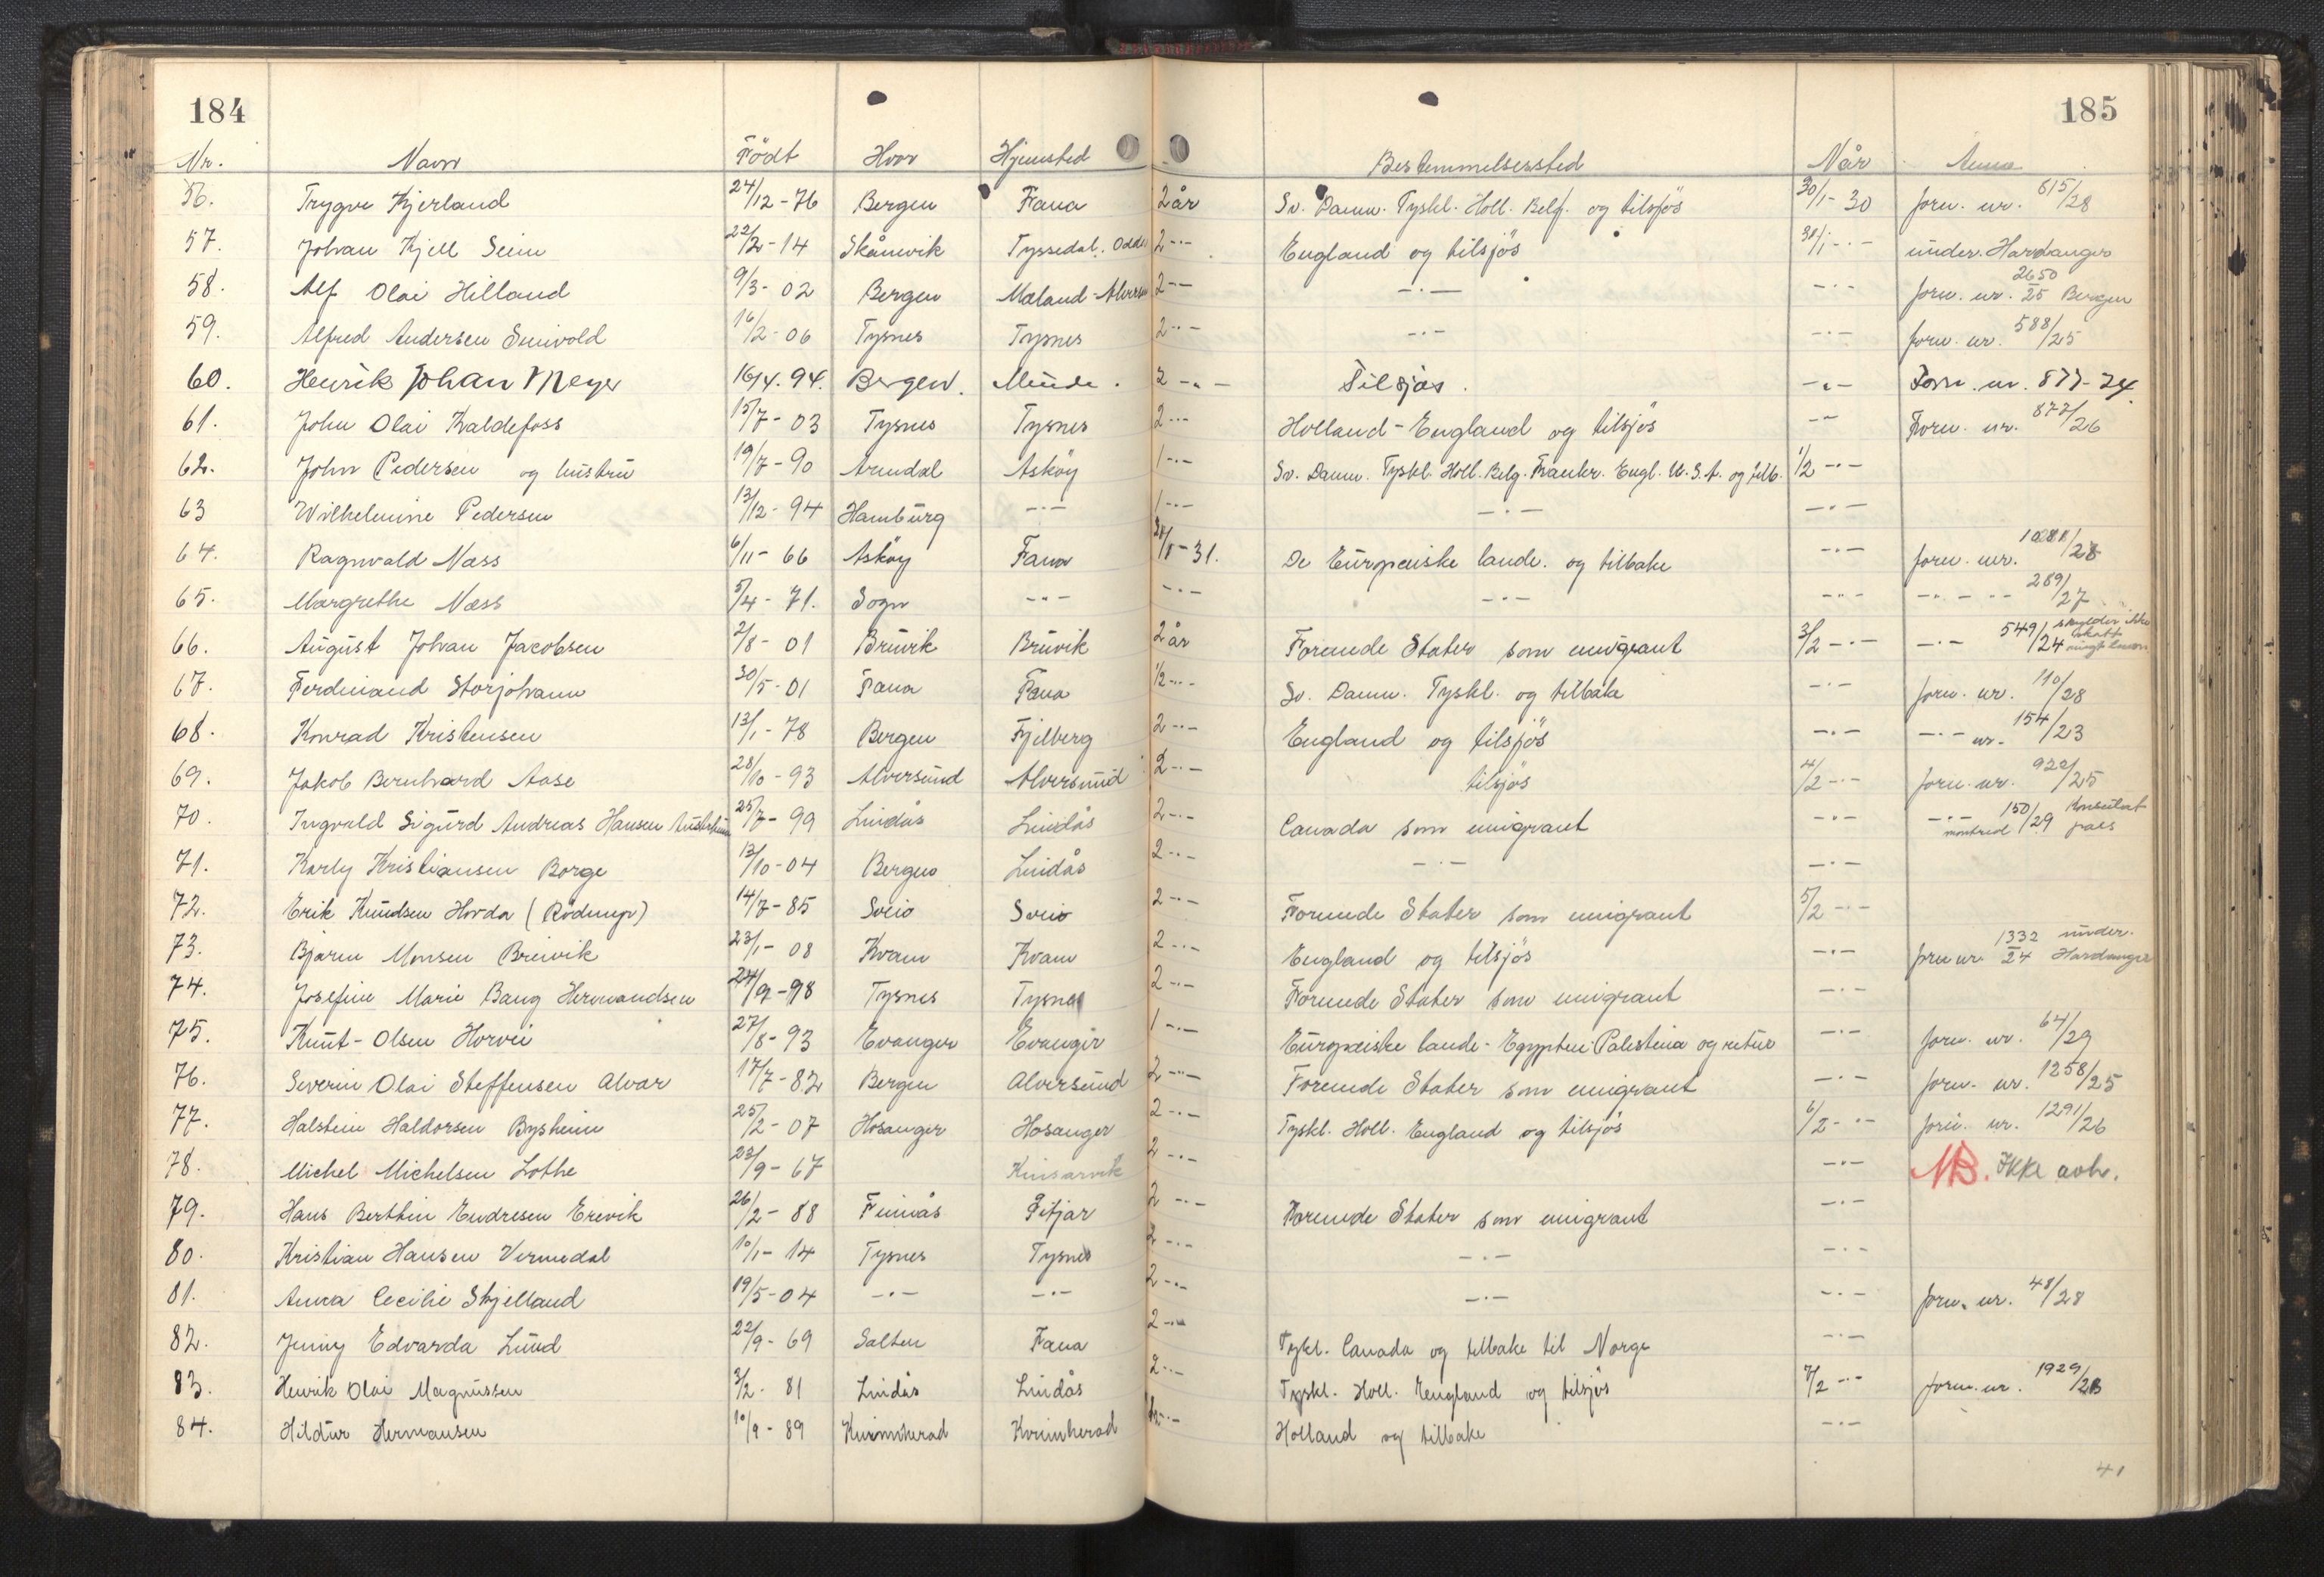 184 185
Nr. Navn Födt Hvor Hjemsted Bestemmelsessted Når Anm
56. Trygve Kjerland 24/12-76 Bergen Fana 2 år Sv. Danm. Tyskl. Holl. Belg. og tilsjös 30/1-30 forn. nr. 615/28
57. Johan Kjell Seim 22/2-14 Skånevik Tyssedal. Odda 2-"- England og tilsjös 31/1-"- under. Hardanger
58. Alf Olai Hilland 9/3-02 Bergen Mæland-Alversu 2-- -"- -"- forn. nr. 2650/25 Bergen
59. Alfred Andersen 16/2-06 Tysnes Tysnes 2-"- -"- -"- forn. nr. 588/25
60. Henrik Johan Meyer 16/4.94. Bergen. Minde. 2-"- Tilsjøs. -"- Forn. nr. 877-24.
61. John Olai Kaldefoss 15/7-03 Tysnes Tysnes 2-"- Holland-England og tilsjös -"- Forn. nr. 872/26
62. John Pedersen og hustru 19/7-90 Arendal Asköy 1-"- Sv. Danm. Tyskl. Holl. Belg. Frankr. Engl. U.S.A. og tilb. 1/2-"-
63 Wilhelmine Pedersen 13/12-94 Hamburg -"- 1-"- -"- -"-
64. Ragnvald Næss 6/11-66 Asköy Fana 31. De Europeiske lande. og tilbake -"- forn. nr. /28
65. Margrethe Næss 5/4-71. Sogn -"- -"- -"- -"- -"- 289/27
66. August Johan Jacobsen 2/8-01 Bruvik Bruvik 2 år Forende Stater som emigrant 3/2-"- -"- 549/24 skylder ikke skatt
67. Ferdinand Storjohann 30/5-01 Fana Fana 1/2-"- Sv. Danm. Tyskl. og tilbake -"- forn. nr. 110/28
68. Konrad Kristensen 13/1-78 Bergen Fjelberg 2-"- England og tilsjös -"- -"- nr. 154/23
69. Jakob Bernhard Aase 28/10-93 Alversund Alversund 2-"- tilsjös 4/2-"- forn. nr. 922/25
70. Ingvald Sigurd Andreas Hansen Austrheim 25/7-99 Lindås Lindås 2-"- Canada som emigrant -"- -"- 150/29 Konsulat montreal pass
71. Karly Kristiansen Borge 13/10-04 Bergen Lindås 2-"- -"- -"-
72. Erik Knudsen Horda 14/7-85 Sveio Sveio 2-"- Forende Stater som emigrant 5/2-"-
73. Bjarne Monsen Breivik 23/1-08 Kvam Kvam 2-"- England og tilsjös -"- forn nr. 1332/24 under. Hardanger
74. Josefine Marie Bang Hermandsen 24/9-98 Tysnes Tysnes 2-"- Forende Stater som emigrant -"-
75. Knut-Olsen Horvei 27/8-93 Evanger Evanger 1-"- Europæiske lande-Egypten-Palestina og retur -"- forn. nr. 64/29
76. Severin Olai Steffensen Alvær 17/7-82 Bergen Alversund 2-"- Forende Stater som emigrant -"- forn. nr. 1258/25
77. Halstein Haldorsen Bysheim 25/2-07 Hosanger Hosanger 2-"- Tyskl. Holl. England og tilsjös 6/2-"- forn. nr. 1291/26
78. Michel Michelsen Lothe 23/9-67 Kinsarvik 2-"- -"- NB. Ikke avh.
79. Hans Berthin Endresen Erevik 26/2-88 Finnås Fitjar 2-"- Forende Stater som emigrant -"-
80. Kristian Hansen Vermedal 10/1-14 Tysnes Tysnes 2-"- -"- -"-
81. Anna Cecilie Skjelland 19/5-04 -"- -"- 2-"- -"- -"- forn. nr. 48/28
82. Jenny Edvarda Lund 22/9-69 Salten Fana 2-"- Tykl. Canada og tilbake til Norge -"-
83. Henrik Olai Magnussen 3/2-81 Lindås Lindås 2-"- Tyskl. Holl. England og tilsjös 7/2-"- forn. nr. 1929/23
84. Hildur Hermansen 10/9-89 Kvinnherad Kvinherad Holland og tilbake -"-
41